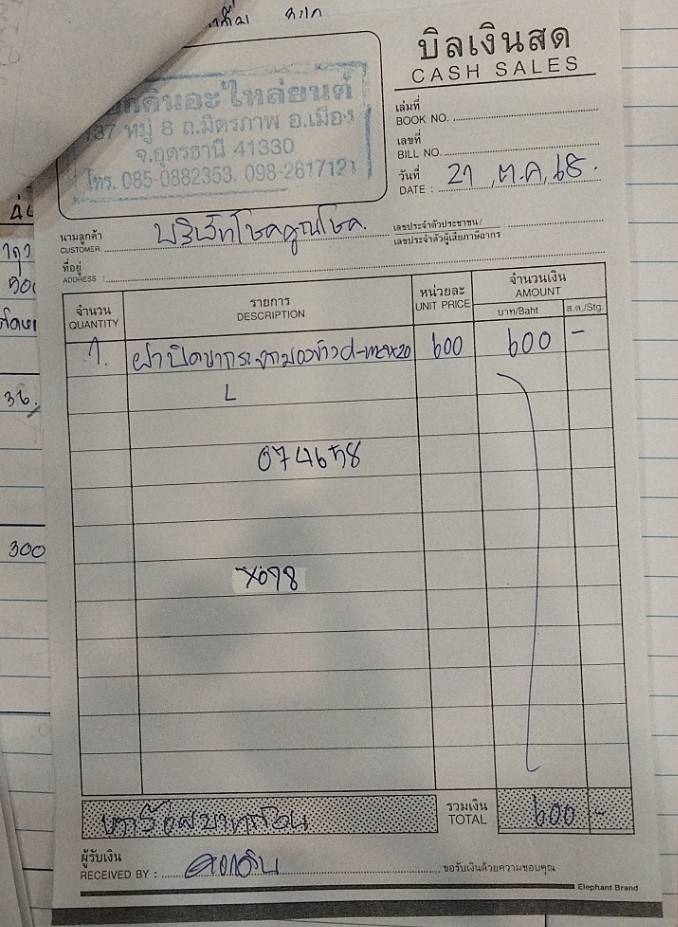 บิลเงินสด
CASH SALES
137 หมู่ 8 ถ.มิตรภาพ อ.เมือง
จ.อุดรธานี 41330
โทร. 085-0882353, 098-2617121
เล่มที่
BOOK NO.
เลขที่
BILL NO.
วันที่
DATE : 21 ต.ค. 68.
นามลูกค้า
CUSTOMER บริษัทโชคคูณโชค.
เลขประจำตัวประชาชน/
เลขประจำตัวผู้เสียภาษีอากร
ที่อยู่
ADDRESS :
จำนวน รายการ หน่วยละ จำนวนเงิน
QUANTITY DESCRIPTION UNIT PRICE AMOUNT
บาท/Baht ส.ต./Stg.
1. ฝาปิดขากระจกมองข้าง d-max20 600 600 -
L
รวมเงิน
TOTAL 600 -
หกร้อยบาทถ้วน
ผู้รับเงิน
RECEIVED BY : ขอรับเงินด้วยความขอบคุณ
Elephant Brand
300